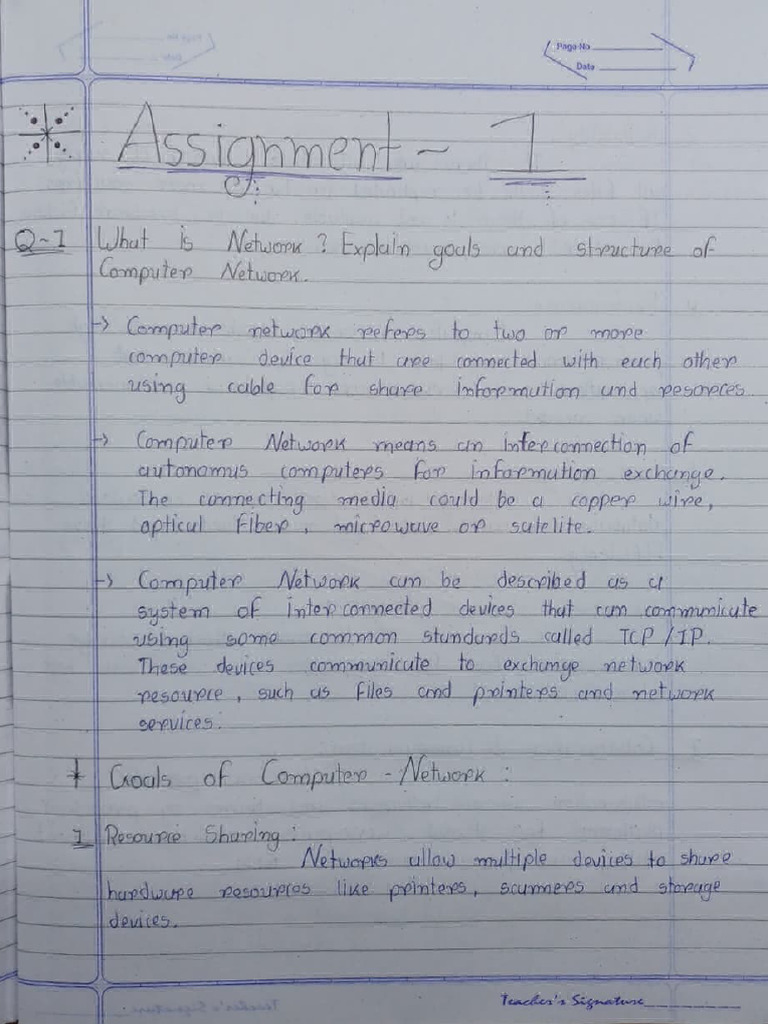 Page No
Date
Assignment - 1
Q-1 What is Network? Explain goals and structure of
Computer Network.
→ Computer network refers to two or more
computer device that are connected with each other
using cable for share information and resources
→ Computer Network means an interconnection of
autonomus computers for information exchange.
The connecting media could be a copper wire,
optical fiber, microwave or satelite.
→ Computer Network can be described as a
system of interconnected devices that can communicate
using some common standards called TCP/IP.
These devices communicate to exchange network
resource, such as files and printers and network
services.
* Goals of Computer - Network :
1 Resource Sharing :
Networks allow multiple devices to share
hardware resources like printers, scanners and storage
devices.
Teacher's Signature